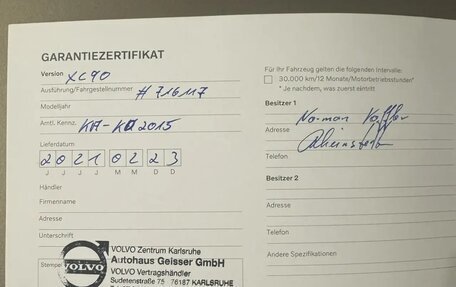 GARANTIEZERTIFIKAT
Version XC90
Ausführung/Fahrgestellnummer #716117
Modelljahr
Amtl. Kennz. KA-KQ2015
Lieferdatum
2 0 2 1 0 2 2 3
J J J J M M D D
Händler
Firmenname
Adresse
Unterschrift
Stempel
VOLVO
VOLVO Zentrum Karlsruhe
Autohaus Geisser GmbH
VOLVO Vertragshändler
Sudetenstraße 75 76187 KARLSRUHE
Für Ihr Fahrzeug gelten die folgenden Intervalle:
30.000 km/12 Monate/Motorbetriebsstunden*
* Je nachdem, was zuerst eintritt
Besitzer 1
Norman
Adresse
Telefon
Besitzer 2
Adresse
Telefon
Andere Spezifikationen